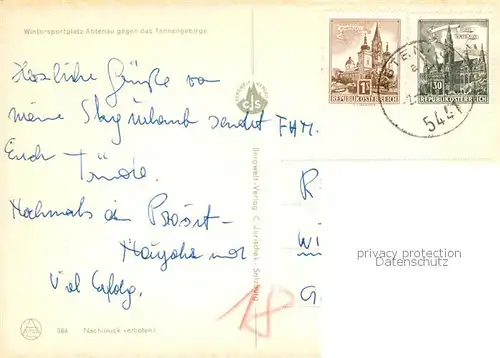 Wintersportplatz Abtenau gegen das Tennengebirge
Herzliche Grüße von
meine Skyurlaub sendet FAM.
Euch
Nochmals ein Prosit-
Viel Erfolg.
CJS
Bergwelt-Verlag C. Jurischek, Salzburg
364 Nachdruck verboten!
1S
REPUBLIK ÖSTERREICH
30
REPUBLIK ÖSTERREICH
5441
R
Wi
G
privacy protection
Datenschutz
18